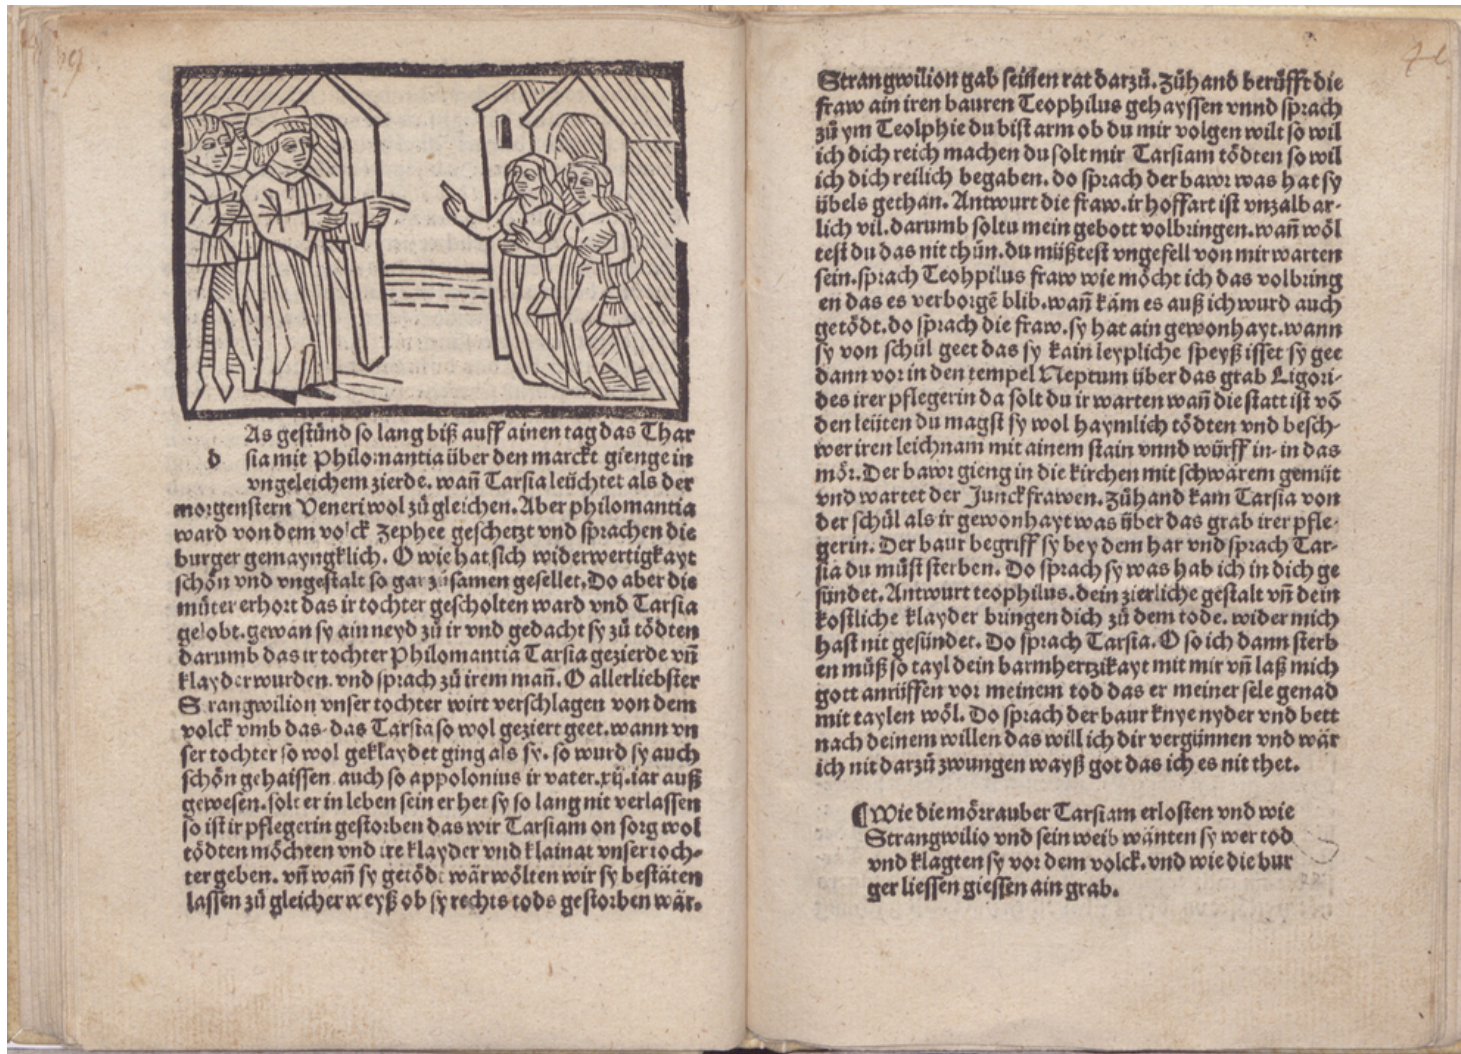 As gestůnd so lang biß auff ainen tag das Thar
d sia mit Philomantia über den marckt gienge in
vngeleichem zierde. wañ Tarsia leüchtet als der
morgenstern Veneri wol zů gleichen. Aber philomantia
ward von dem volck Zephee geschetzt vnd sprachen die
burger gemayngklich. O wie hat sich widerwertigkayt
schön vnd vngestalt so gar zůsamen gesellet. Do aber die
můter erhort das ir tochter gescholten ward vnd Tarsia
gelobt. gewan sy ain neyd zů ir vnd gedacht sy zů tödten
darumb das ir tochter Philomantia Tarsia gezierde vñ
klayder wurden. vnd sprach zů irem mañ. O allerliebster
S rangwilion vnser tochter wirt verschlagen von dem
volck vmb das. das Tarsia so wol geziert geet. wann vn
ser tochter so wol geklaydet ging als sy. so wurd sy auch
schön gehaissen. auch so appolonius ir vater. xij. iar auß
gewesen. solt er in leben sein er het sy so lang nit verlassen
so ist ir pflegerin gestorben das wir Tarsiam on sorg wol
tödten möchten vnd ire klayder vnd klainat vnser toch-
ter geben. vñ wañ sy getödt wär wölten wir sy bestäten
lassen zů gleicher weyß ob sy rechts tods gestorben wär.
Strangwilion gab seinen rat darzů. Zůhand berüfft die
fraw ain iren bauren Teophilus gehayssen vnnd sprach
zů ym Teolphie du bist arm ob du mir volgen wilt so wil
ich dich reich machen du solt mir Tarsiam tödten so wil
ich dich reilich begaben. do sprach der bawr was hat sy
übels gethan. Antwurt die fraw. ir hoffart ist vnzalbar-
lich vil. darumb soltu mein gebott volbringen. wañ wöl
test du das nit thůn. du müßtest vngefell von mir warten
sein. sprach Teohpilus fraw wie möcht ich das volbring
en das es verborgē blib. wañ käm es auß ich wurd auch
getödt. do sprach die fraw. sy hat ain gewonhayt. wann
sy von schůl geet das sy kain leypliche speyß isset sy gee
dann vor in den tempel Neptum über das grab Ligori-
des irer pflegerin da solt du ir warten wañ die statt ist vō
den leüten du magst sy wol haymlich tödten vnd besch-
wer iren leichnam mit ainem stain vnnd würff in. in das
mör. Der bawr gieng in die kirchen mit schwärem gemüt
vnd wartet der Junckfrawen. Zůhand kam Tarsia von
der schůl als ir gewonhayt was über das grab irer pfle-
gerin. Der baur begriff sy bey dem har vnd sprach Tar-
sia du můst sterben. Do sprach sy was hab ich in dich ge
sündet. Antwurt teophilus. dein zierliche gestalt vñ dein
kostliche klayder bringen dich zů dem tode. wider mich
hast nit gesündet. Do sprach Tarsia. O so ich dann sterb
en můß so tayl dein barmhertzikayt mit mir vñ laß mich
gott anrüffen vor meinem tod das er meiner sele genad
mit taylen wöl. Do sprach der baur knye nyder vnd bett
nach deinem willen das will ich dir vergünnen vnd wär
ich nit darzů zwungen wayß got das ich es nit thet.
¶ Wie die mörrauber Tarsiam erlosten vnd wie
Strangwilio vnd sein weib wänten sy wer tod
vnd klagten sy vor dem volck. vnd wie die bur
ger liessen giessen ain grab.